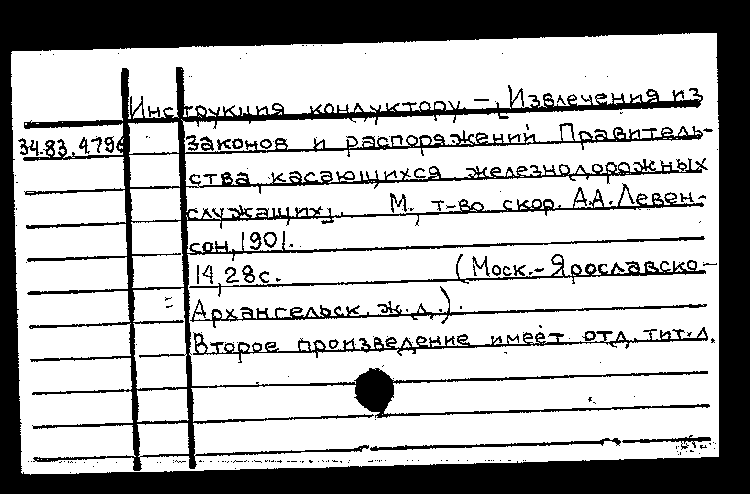 Инструкция кондуктору. – [Извлечения из
34.83.4796 законов и распоряжений Правитель-
ства, касающихся железнодорожных
служащих]. М., т-во скор. А.А. Левен-
сон, 1901.
14, 28 с. (Моск.-Ярославско-
Архангельск. ж.д.).
Второе произведение имеет отд. тит. л.